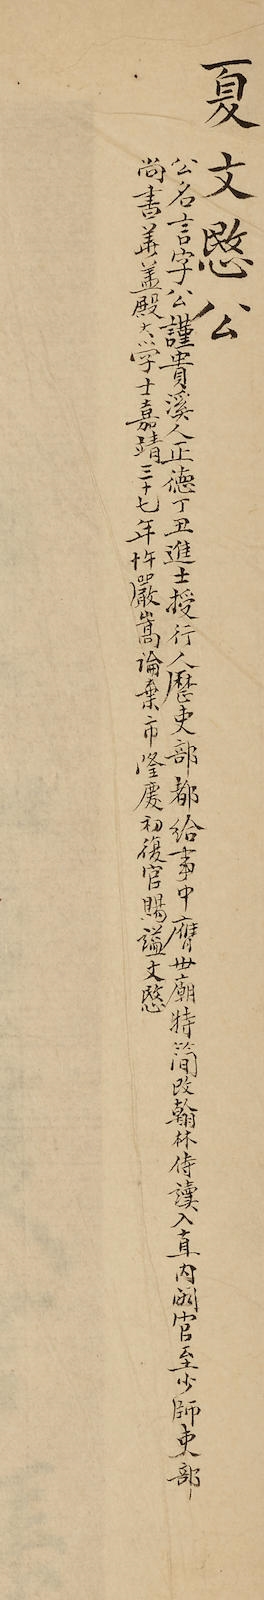 夏文愍公
公名言字公謹貴溪人正德丁丑進士授行人歷吏部都給事中膺世廟特簡改翰林侍讀入直內閣官至少師吏部
尚書華蓋殿大學士嘉靖三十七年忤嚴嵩論棄市隆慶初復官賜謚文愍